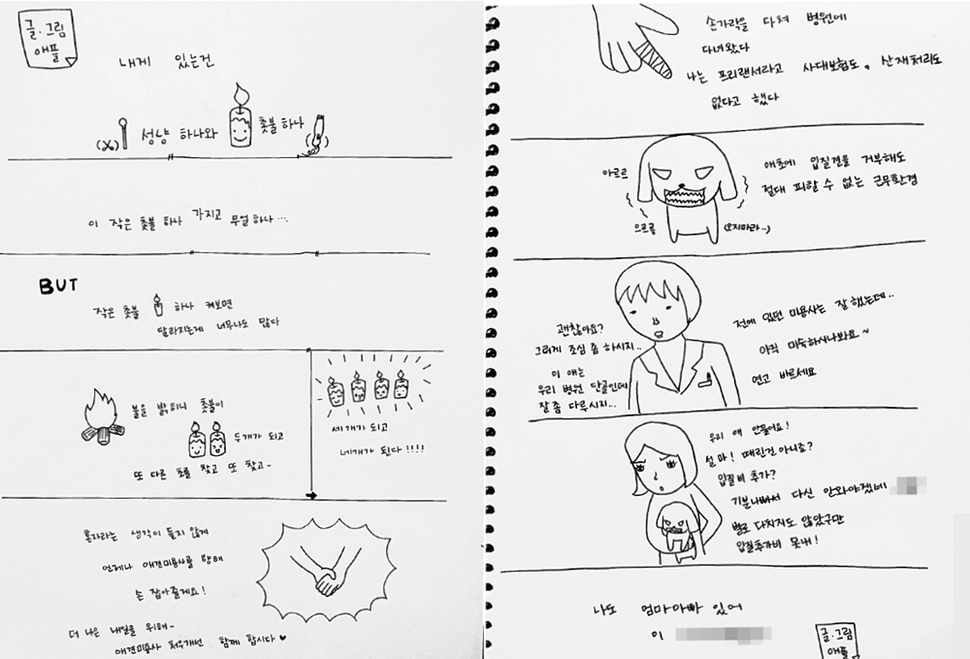 글·그림
애플
내게 있는건
(X) 성냥 하나와 촛불 하나
이 작은 촛불 하나 가지고 무얼 하나…
BUT
작은 촛불 하나 켜보면
달라지는게 너무나도 많다
불을 밝히니 촛불이
두개가 되고
또 다른 초를 찾고 또 찾고~
세개가 되고
네개가 된다!!!!
혼자라는 생각이 들지 않게
언제나 애견미용사를 향해
손 잡아줄게요!
더 나은 내일을 위해~
애견미용사 처우개선 함께 합시다♥
손가락을 다쳐 병원에
다녀왔다
나는 프리랜서라고 사대보험도, 산재처리도
없다고 했다
아르르
으르릉
(오지마라~)
애초에 입질견을 거부해도
절대 피할 수 없는 근무환경
괜찮아요?
그러게 조심 좀 하시지..
이 애는
우리 병원 단골인데
잘 좀 다루시지...
전에 있던 미용사는 잘 했는데..
아직 미숙하시나봐요~
연고 바르세요
우리 애 안물어요!
설마! 때린건 아니죠?
입질비 추가?
기분나빠서 다신 안와야겠네
별로 다치지도 않았구만
입질추가비 못내!
나도 엄마아빠 있어
이
글·그림
애플